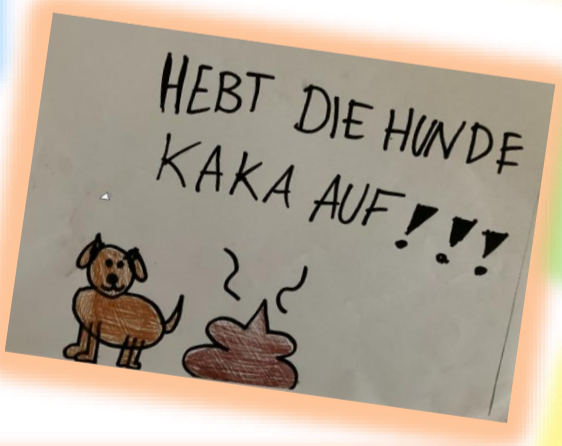 HEBT DIE HUNDE
KAKA AUF!!!